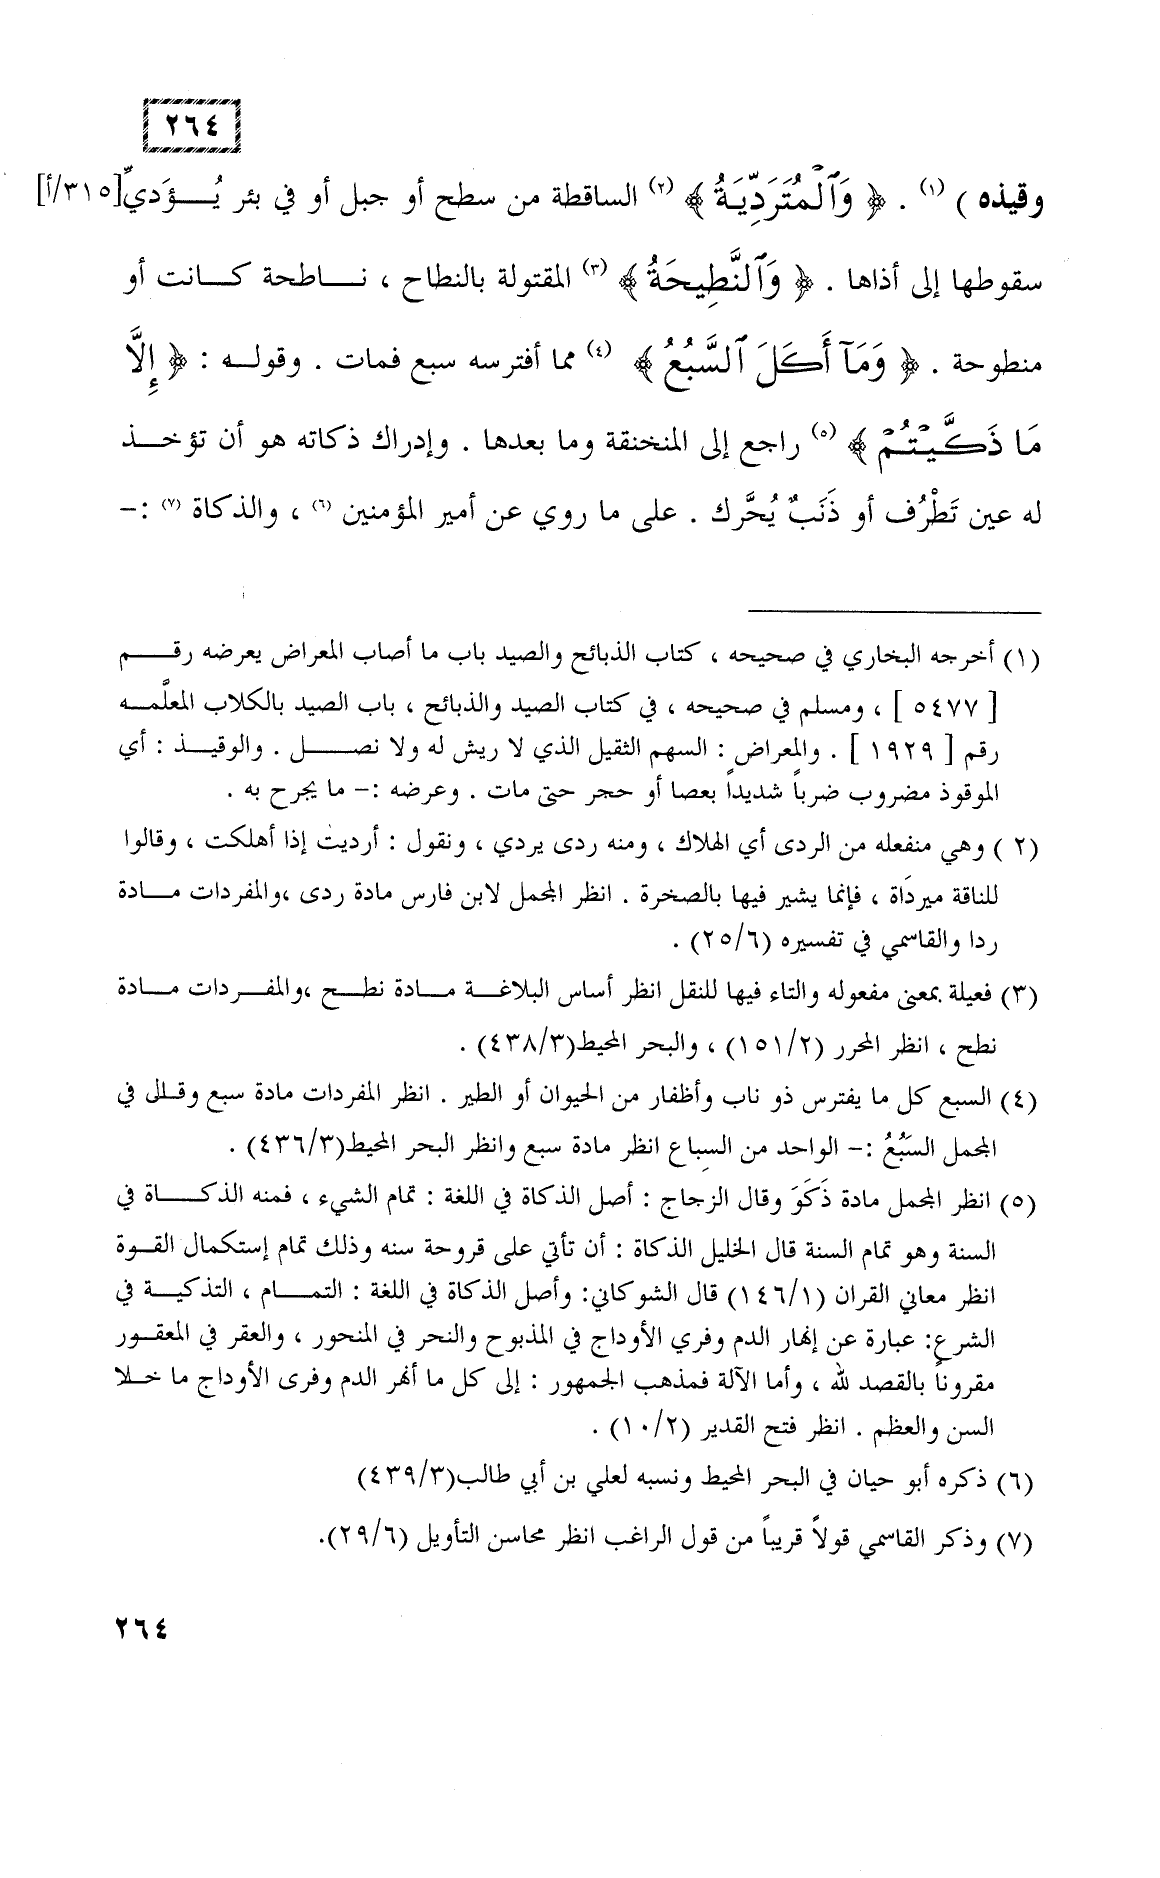 ٢٦٤
وقيذه ) (١) . ﴿ وَٱلْمُتَرَدِّيَةُ ﴾ (٢) الساقطة من سطح أو جبل أو في بئر يُـــؤَديِّ[٣١٥/أ]
سقوطها إلى أذاها . ﴿ وَٱلنَّطِيحَةُ ﴾ (٣) المقتولة بالنطاح ، ناطحة كانت أو
منطوحة . ﴿ وَمَآ أَكَلَ ٱلسَّبُعُ ﴾ (٤) مما أفترسه سبع فمات . وقوله : ﴿ إِلَّا
مَا ذَكَّيْتُمْ ﴾ (٥) راجع إلى المنخنقة وما بعدها . وإدراك ذكاته هو أن تؤخذ
له عين تَطْرُف أو ذَنَبٌ يُحَّرك . على ما روي عن أمير المؤمنين (٦) ، والذكاة (٧) :–
(١) أخرجه البخاري في صحيحه ، كتاب الذبائح والصيد باب ما أصاب المعراض يعرضه رقم
[ ٥٤٧٧ ] ، ومسلم في صحيحه ، في كتاب الصيد والذبائح ، باب الصيد بالكلاب المعلَّمه
رقم [ ١٩٢٩ ] . والمعراض : السهم الثقيل الذي لا ريش له ولا نصل . والوقيذ : أي
الموقوذ مضروب ضرباً شديداً بعصا أو حجر حتى مات . وعرضه :– ما يجرح به .
(٢ ) وهي منفعله من الردى أي الهلاك ، ومنه ردى يردي ، ونقول : أرديت إذا أهلكت ، وقالوا
للناقة ميردَاة ، فإنما يشير فيها بالصخرة . انظر المجمل لابن فارس مادة ردى ،والمفردات مادة
ردا والقاسمي في تفسيره (٢٥/٦) .
(٣) فعيلة بمعنى مفعوله والتاء فيها للنقل انظر أساس البلاغة مادة نطح ،والمفردات مادة
نطح ، انظر المحرر (١٥١/٢) ، والبحر المحيط(٤٣٨/٣) .
(٤) السبع كل ما يفترس ذو ناب وأظفار من الحيوان أو الطير . انظر المفردات مادة سبع وقلل في
المجمل السَبُعُ :– الواحد من السِباع انظر مادة سبع وانظر البحر المحيط(٤٣٦/٣) .
(٥) انظر المجمل مادة ذَكَوَ وقال الزجاج : أصل الذكاة في اللغة : تمام الشيء ، فمنه الذكاة في
السنة وهو تمام السنة قال الخليل الذكاة : أن تأتي على قروحة سنه وذلك تمام إستكمال القوة
انظر معاني القران (١٤٦/١) قال الشوكاني: وأصل الذكاة في اللغة : التمام ، التذكية في
الشرع: عبارة عن إنهار الدم وفري الأوداج في المذبوح والنحر في المنحور ، والعقر في المعقور
مقروناً بالقصد لله ، وأما الآلة فمذهب الجمهور : إلى كل ما أنهر الدم وفرى الأوداج ما خلا
السن والعظم . انظر فتح القدير (١٠/٢) .
(٦) ذكره أبو حيان في البحر المحيط ونسبه لعلي بن أبي طالب(٤٣٩/٣)
(٧) وذكر القاسمي قولاً قريباً من قول الراغب انظر محاسن التأويل (٢٩/٦).
٢٦٤